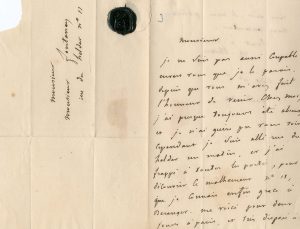 Monsieur
Monsieur Fontaney
rue du helder nº 11
Monsieur
je ne suis pas aussi coupable
envers vous que je le parais.
depuis que vous m'avez fait
l'honneur de venir chez moi,
j'ai presque toujours été absent
et je n'ai guère pu vous voir
cependant je suis allé rue du
helder un matin, et j'ai
frappé à toutes les portes, pour
découvrir le malheureux nº 11,
que je connais enfin grâce à
Beranger. me voici pour deux
jours à paris, et très disposé à